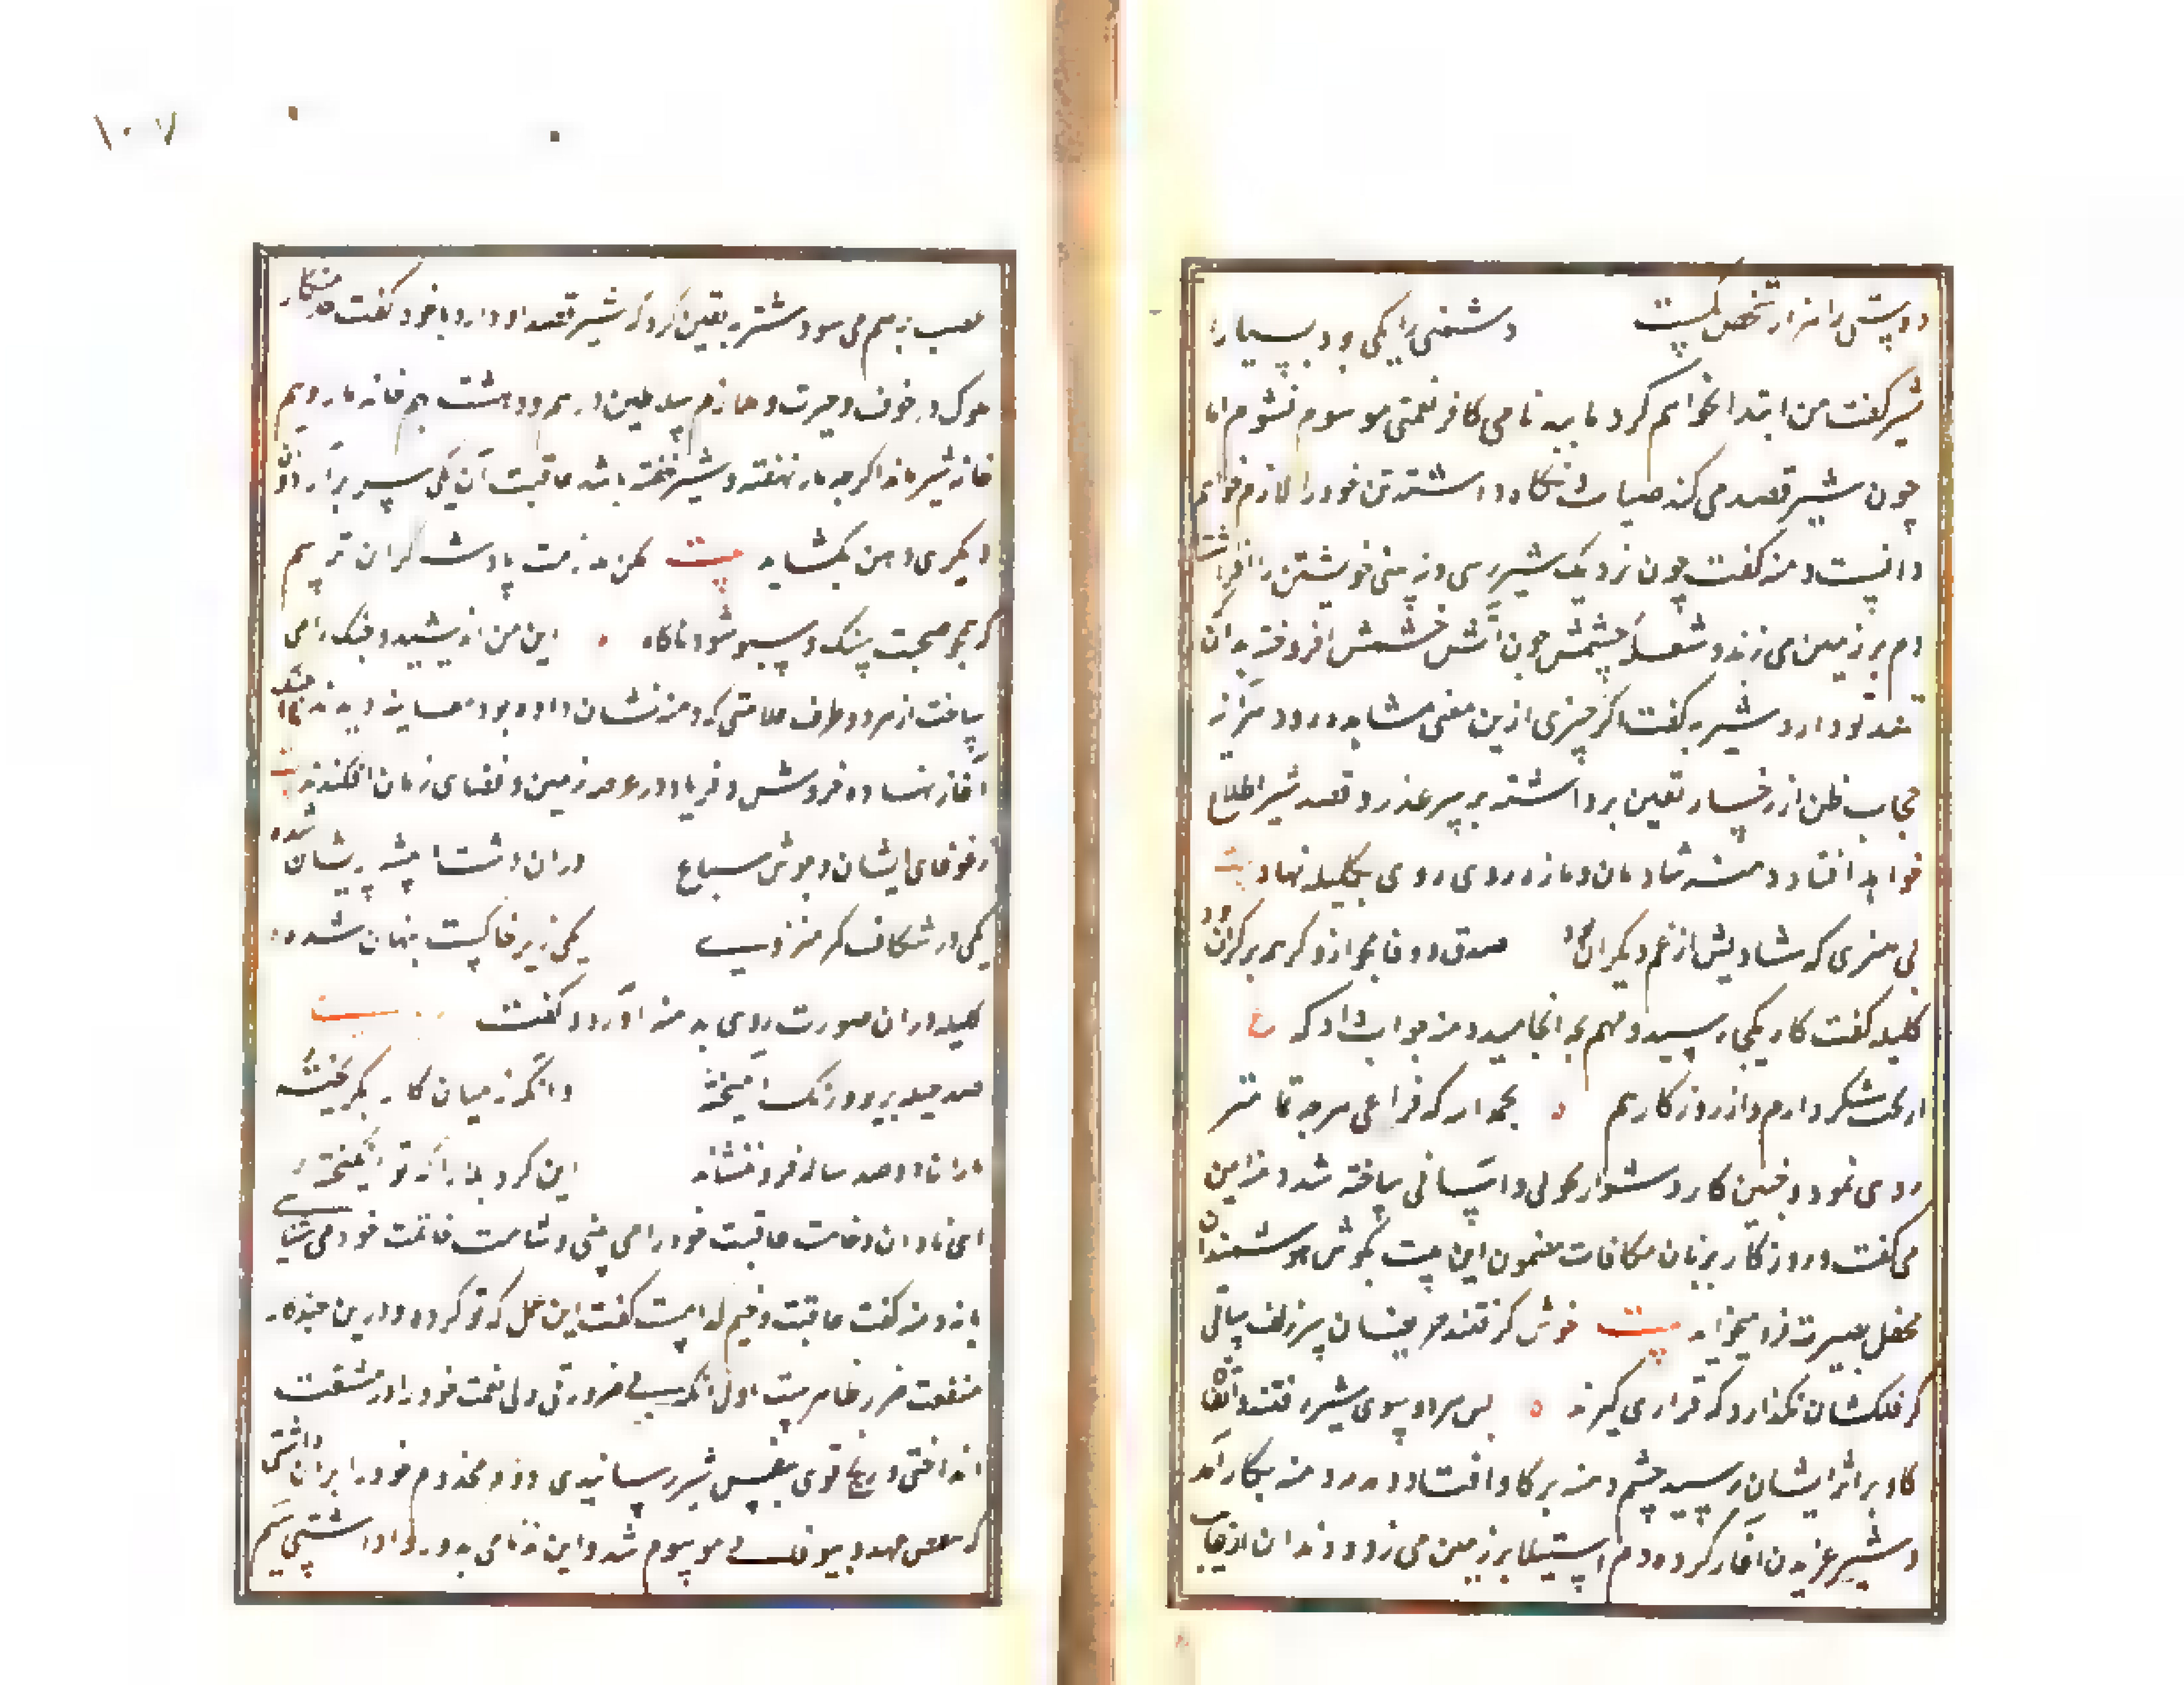 دوستی را هزار شخص کمست دشمنی را یکی بود بسیار
شیر گفت من ابتدا نخواهم کرد تا به نامی کافر نعمتی موسوم نشوم اما
چون شیر قصد می کند صیانت نگاه داشتن خود را لازم خواهم
دانست دمنه گفت چون نزدیک شیر رسی و نه بینی خویشتن را افراشته
دم بر زمین می زند و شعله چشمش چون آتش خشمش افروخته بدان
قصد تو دارد شنزبه گفت اگر چیزی ازین معنی مشاهده رود هرآینه
حجاب ظن از رخسار یقین برداشته بر سر غدر و قصد شیر اطلاع
خواهد افتاد دمنه شادمان و تازه روی روی بکلیله نهاد بیت
بی هنری که شادیش از غم دیگران بود صدق و وفا مجو ازو کو همه بر کران بود
کلیله گفت کار بکجا رسید و مهم بچه انجامید دمنه جواب داد که ع
از بخت شکر دارم و از روزگار هم بحمد الله که فراغی هر چه تمامتر
روی نمود و چنین کار دشوار بخوبی و آسانی ساخته شد دمنه این
می گفت و روزگار بزبان مکافات مضمون این بیت بگوش هوشمندان
محفل بصیرت فرو میخواند بیت خوش گرفتند حریفان سر زلف ساقی
گر فلکشان بگذارد که قراری گیرند پس هر دو بسوی شیر رفتند و اتفاقا
گاو بر اثر ایشان رسید چشم دمنه بر گاو افتاد و دمدمه بکار آمد
و شیر غریدن آغاز کرده دم استیلا بر زمین می زد و دندان از غایت
غضب بر هم می سود شنزبه یقین کرد که شیر قصد او دارد با خود گفت خدمتگار
ملوک در خوف و حیرت و ملازم سلاطین در بیم و دهشت بهم خانه مار و هم
خانه شیر ماند اگر چه مار نهفته و شیر خفته باشد عاقبت آن یکی سر برآرد و آن
دیگری دهن بگشاید بیت مکن ملازمت پادشه کزان ترسم
که همچو صحبت سنگ و سبو شود ناگاه این من اندیشید و جنگ را می
ساخت از هر دو طرف علامتی که دمنه نشان داده بود معاینه دیدند جنگ
آغاز نهادند و خروش و فریاد در عرصه زمین و فضای زمان افکندند بیت
ز غوغای ایشان و جوش سباع دران دشت و بیشه پریشان شده
یکی در شکاف کمر منزوی یکی زیر خاشاک پنهان شده
کلیله دران صورت روی به دمنه آورد و گفت بیت
صد حیله برو رنگ آمیخته وانگه ز میان کار بگریخته
باران دو صد ساله فرو ننشاند این گرد بلا را که تو انگیخته
ای نادان وخامت عاقبت خود را می بینی و شامت خاتمت خود می شناسی
یا نه دمنه گفت عاقبت وخیم کدامست گفت این عمل که تو کرده درین چند
منفعت ضرر ظاهرست اول آنکه بی ضرورتی ولی نعمت خود را در مشقت
انداختی و رنج قوی بنفس شیر رسانیدی دوم مخدوم خود را بران داشتی
که بنقض عهد و بیوفایی موسوم شد و این بدنامی بدو روا داشتی سیم
۱۰۷